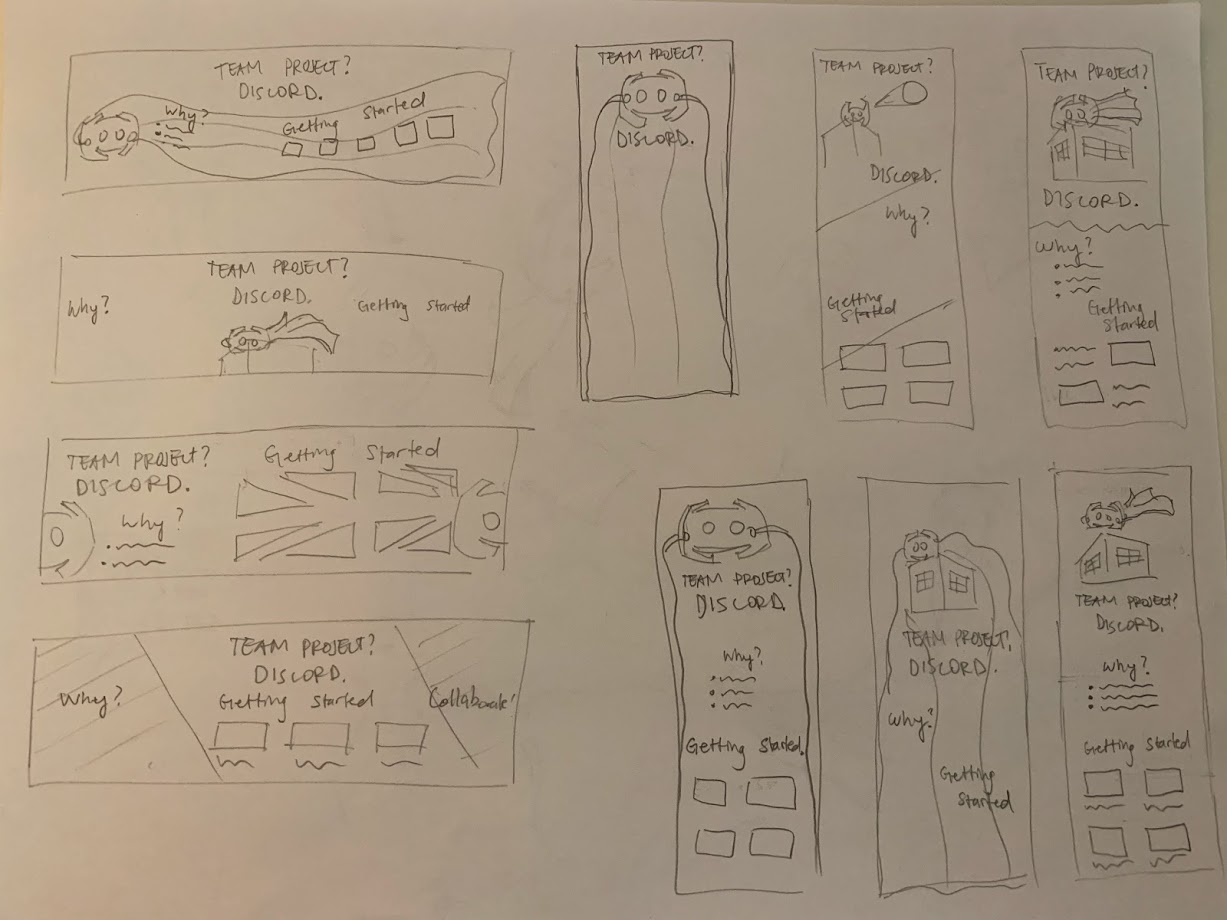 TEAM PROJECT?
DISCORD.
Why?
Getting Started
TEAM PROJECT?
DISCORD.
Why?
Getting Started
TEAM PROJECT?
DISCORD.
Getting Started
Why?
TEAM PROJECT?
DISCORD.
Why?
Getting Started
Collaborate!
TEAM PROJECT?
DISCORD.
TEAM PROJECT?
DISCORD.
Why?
Getting
Started
TEAM PROJECT?
DISCORD.
Why?
Getting
Started
TEAM PROJECT?
DISCORD.
Why?
Getting Started.
TEAM PROJECT?
DISCORD.
Why?
Getting
Started
TEAM PROJECT?
DISCORD.
Why?
Getting Started